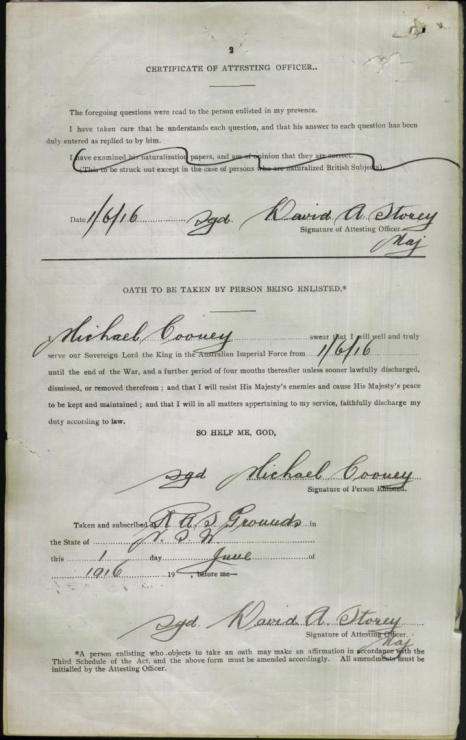 2
CERTIFICATE OF ATTESTING OFFICER..
The foregoing questions were read to the person enlisted in my presence.
I have taken care that he understands each question, and that his answer to each question has been
duly entered as replied to by him.
I have examined his naturalisation papers, and am of opinion that they are correct.
(This to be struck out except in the case of persons who are naturalized British Subjects).
Date 1/6/16 sgd. David A. Storey
Signature of Attesting Officer
Maj
OATH TO BE TAKEN BY PERSON BEING ENLISTED.*
Michael Cooney swear that I will well and truly
serve our Sovereign Lord the King in the Australian Imperial Force from 1/6/16
until the end of the War, and a further period of four months thereafter unless sooner lawfully discharged,
dismissed, or removed therefrom ; and that I will resist His Majesty's enemies and cause His Majesty's peace
to be kept and maintained ; and that I will in all matters appertaining to my service, faithfully discharge my
duty according to law.
SO HELP ME, GOD,
sgd Michael Cooney
Signature of Person Enlisted.
Taken and subscribed at R A S Grounds in
the State of N. S W
this 1 day June of
1916 19 , before me—
sgd. David A. Storey
Signature of Attesting Officer.
Maj
*A person enlisting who objects to take an oath may make an affirmation in accordance with the
Third Schedule of the Act, and the above form must be amended accordingly. All amendments must be
initialled by the Attesting Officer.